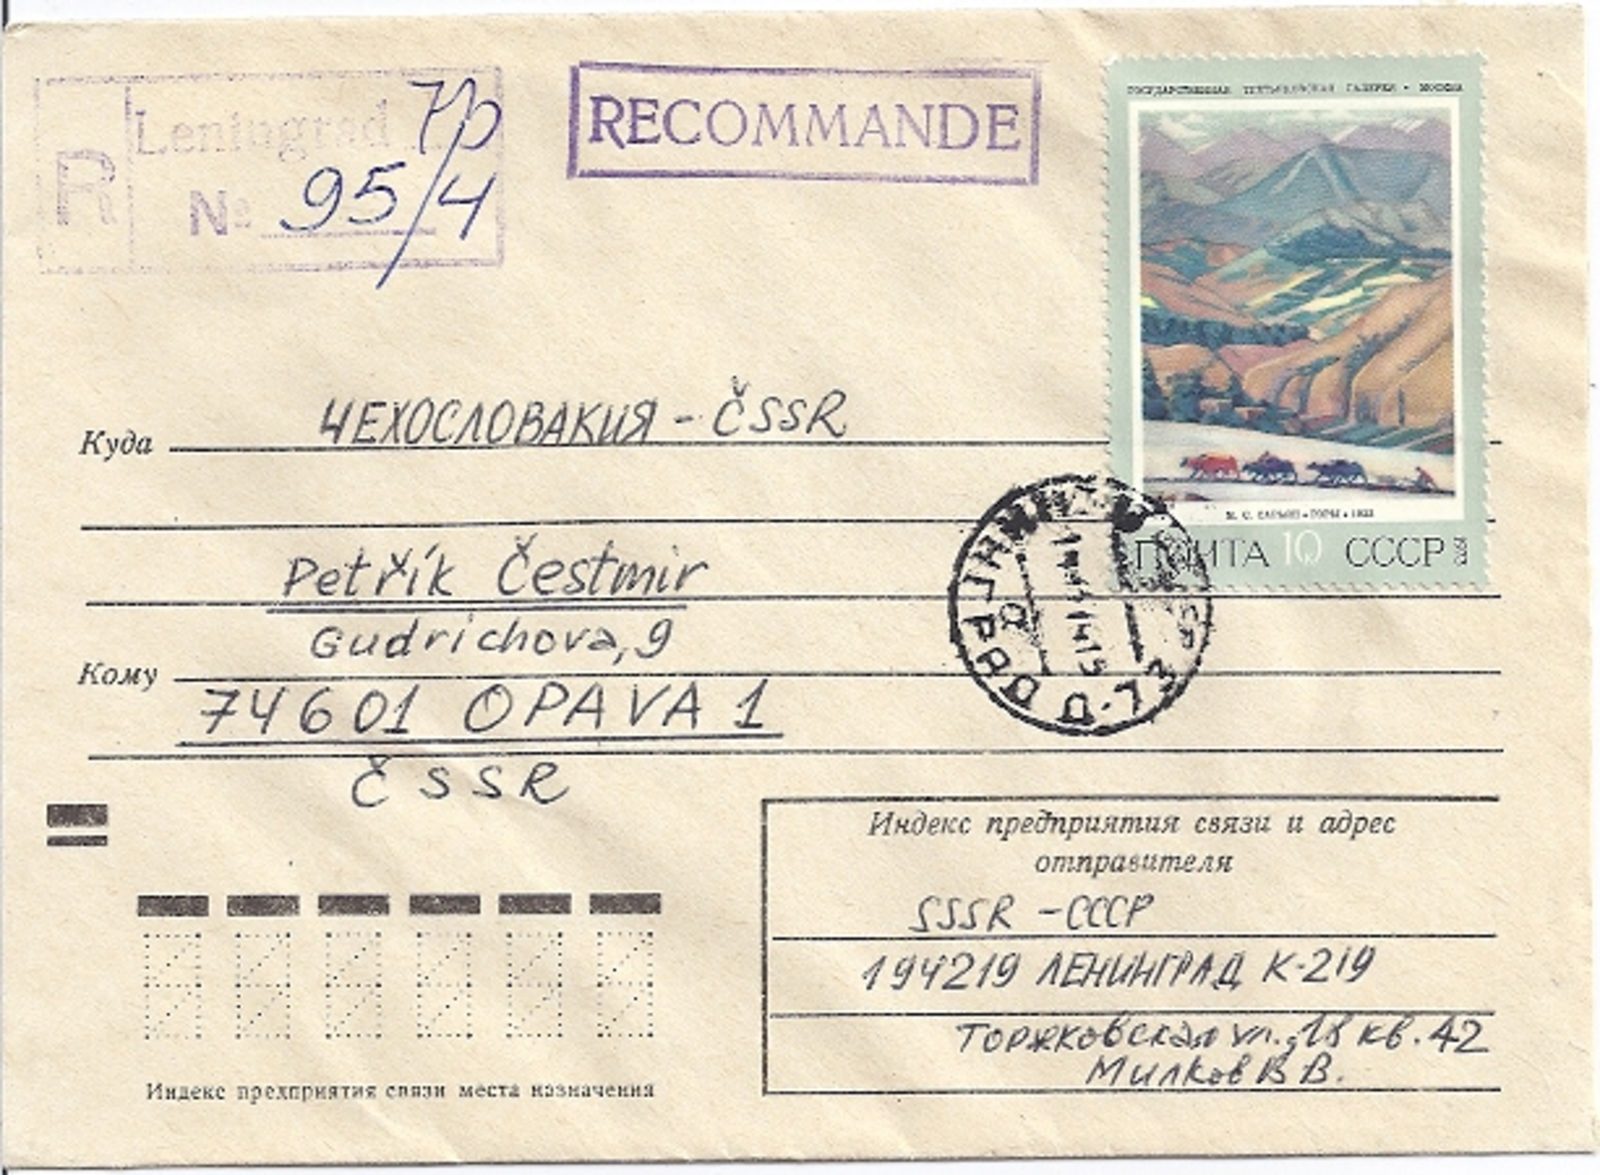 R
Leningrad
№ 95/4
RECOMMANDE
ГОСУДАРСТВЕННАЯ ТРЕТЬЯКОВСКАЯ ГАЛЕРЕЯ • МОСКВА
М. С. САРЬЯН • ГОРЫ • 1923
ПОЧТА 10 СССР
Куда ЧЕХОСЛОВАКИЯ - ČSSR
Petřík Čestmir
Gudrichova, 9
Кому
74601 OPAVA 1
ČSSR
ЛЕНИНГРАД Д-73
Индекс предприятия связи и адрес
отправителя
SSSR - СССР
194219 ЛЕНИНГРАД К-219
Торжковская ул., 18 кв. 42
Милков В В.
Индекс предприятия связи места назначения